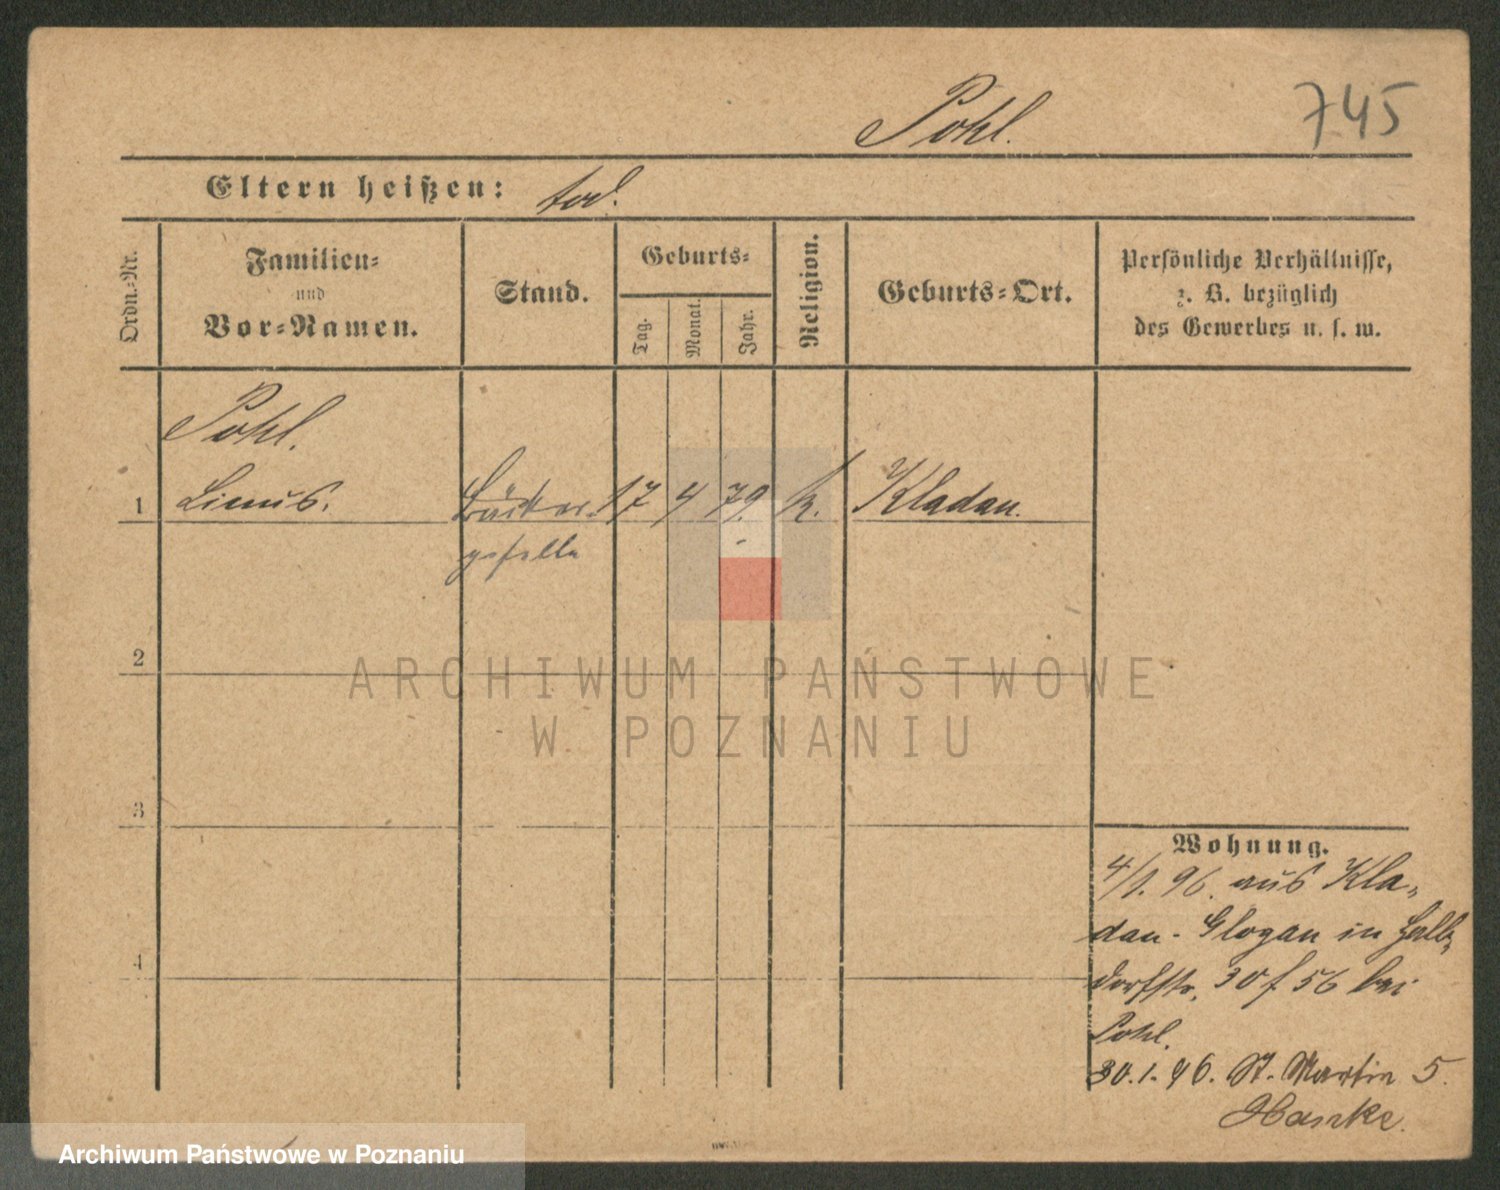 Pohl. 745
Eltern heißen: tod.
Ordn.-Nr.
Familien-
und
Vor-Namen.
Stand.
Geburts-
Tag.
Monat.
Jahr.
Religion.
Geburts-Ort.
Persönliche Verhältnisse,
z. B. bezüglich
des Gewerbes u. s. w.
Pohl.
1 Linus. Bäcker- 17 4 79. k. Kladau.
geselle
2
ARCHIWUM PAŃSTWOWE
W POZNANIU
3
Wohnung.
4/1. 96. aus Kla-
dau - Glogau in Halb-
4
dorfstr. 30 f 56 bei
Pohl.
30.1.96. St. Martin 5.
Hanke.
Archiwum Państwowe w Poznaniu